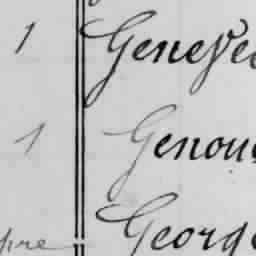 1 Geneve
1 Genou
pre George